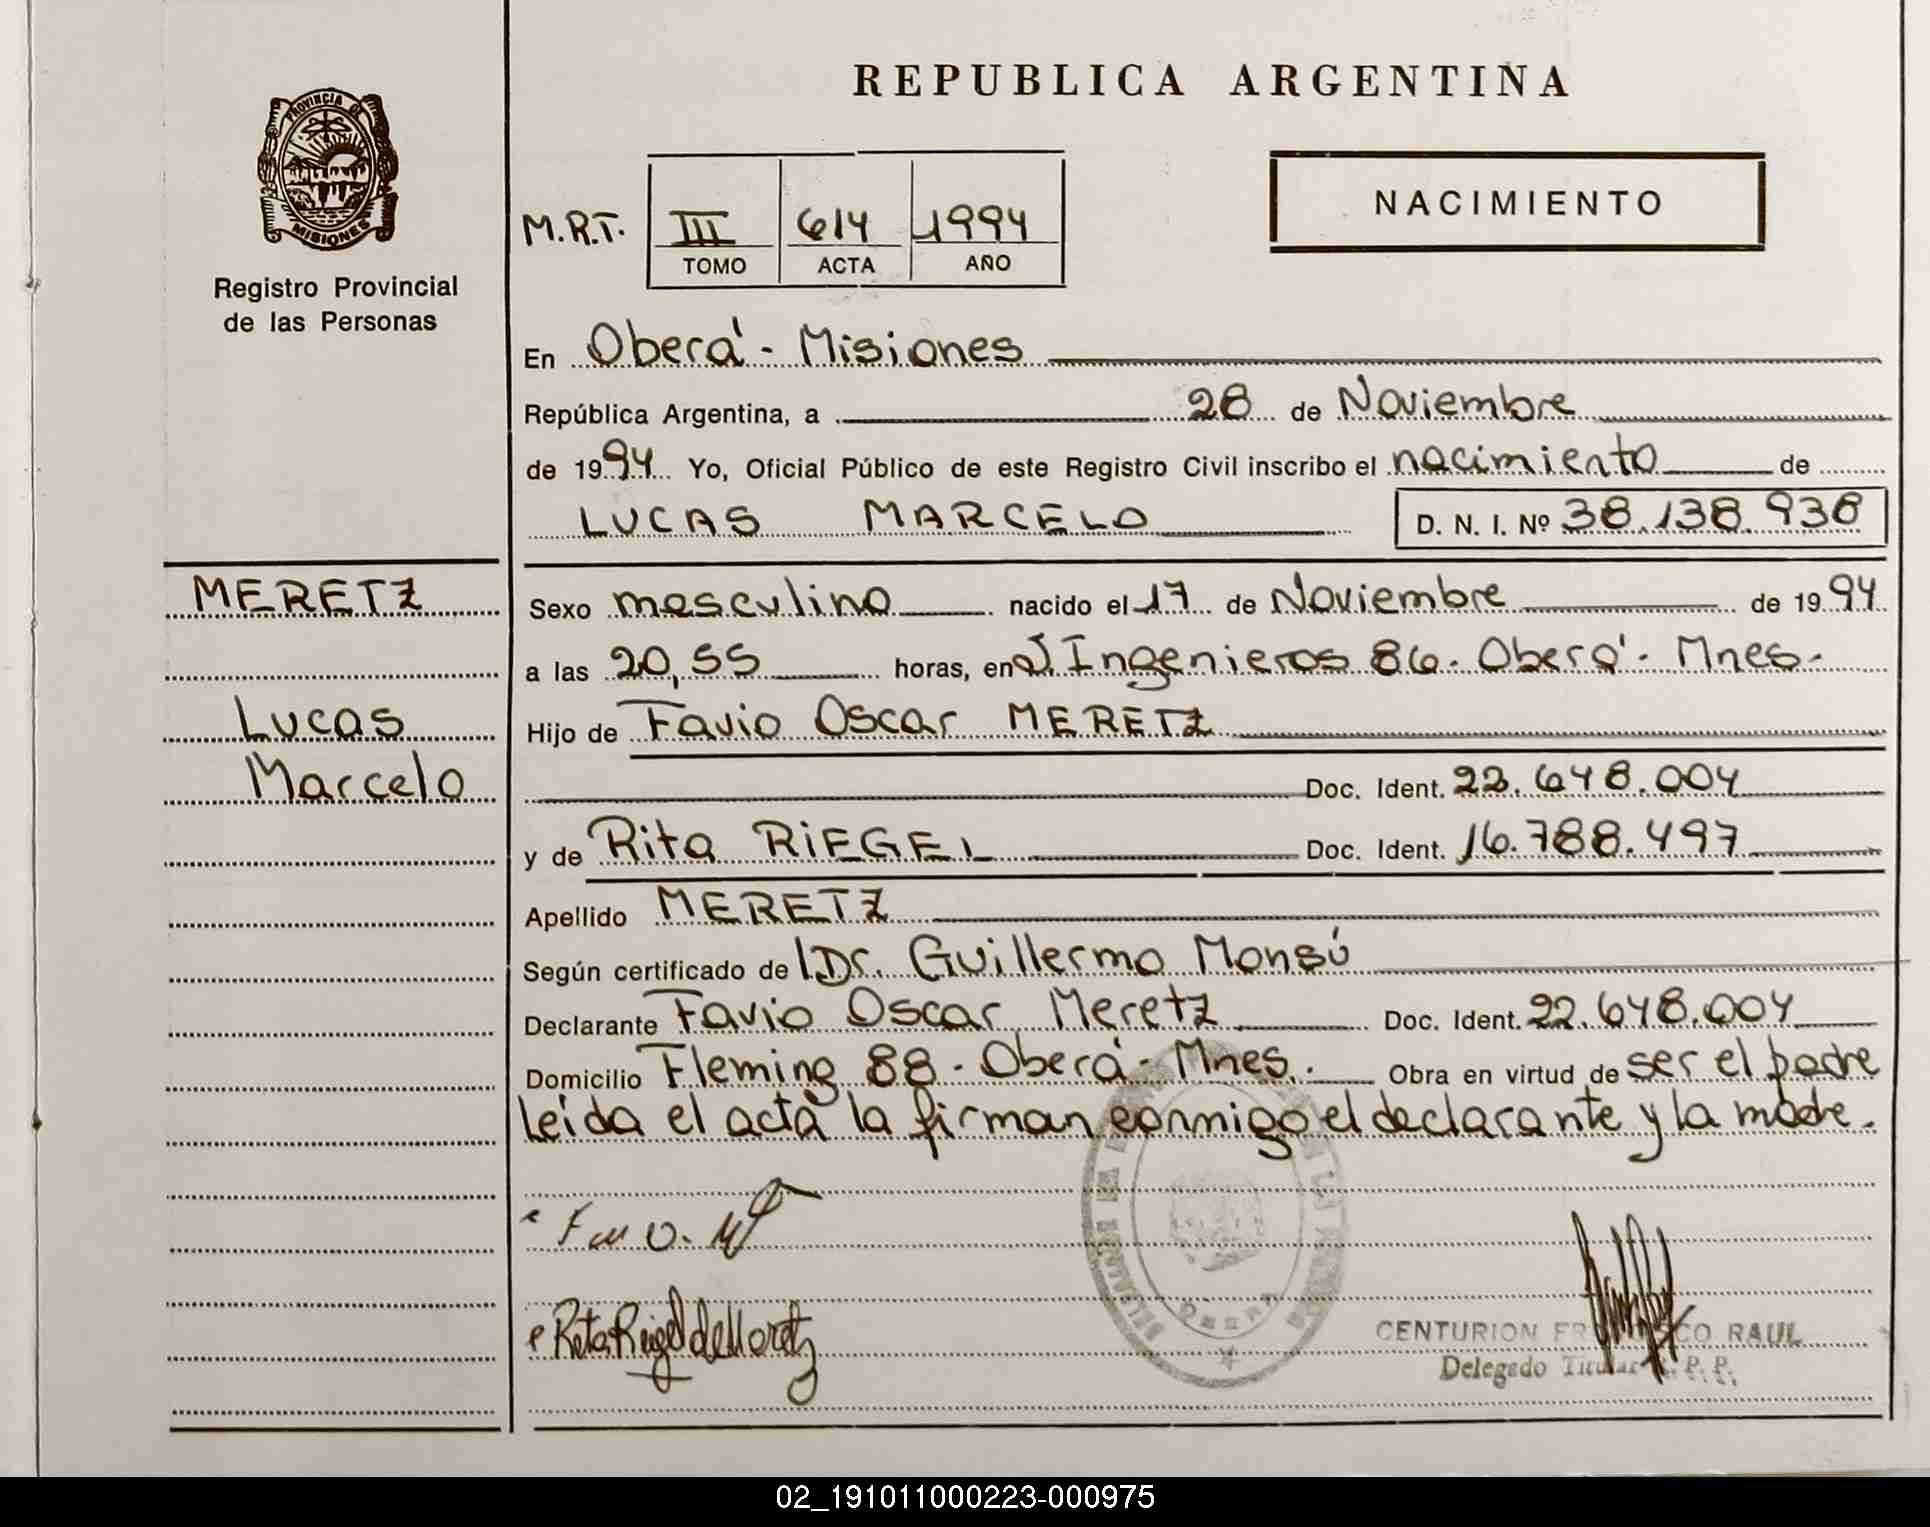 REPUBLICA ARGENTINA
PROVINCIA DE
MISIONES
Registro Provincial
de las Personas
M.R.T.
III 614 1994
TOMO ACTA AÑO
NACIMIENTO
En Oberá - Misiones
República Argentina, a 28 de Noviembre
de 1994 Yo, Oficial Público de este Registro Civil inscribo el nacimiento de
LUCAS MARCELO D. N. I. Nº 38.138.938
MERETZ
Lucas
Marcelo
Sexo masculino nacido el 17 de Noviembre de 1994
a las 20,55 horas, en J. Ingenieros 86. Oberá - Mnes.
Hijo de Favio Oscar MERETZ
Doc. Ident. 22.648.004
y de Rita RIEGEL Doc. Ident. 16.788.497
Apellido MERETZ
Según certificado de Dr. Guillermo Monsú
Declarante Favio Oscar Meretz Doc. Ident. 22.648.004
Domicilio Fleming 88 - Oberá - Mnes. Obra en virtud de ser el padre
Leída el acta la firman conmigo el declarante y la madre.
OBERA
CENTURION RAUL
Delegado Titular R. P. P.
02_191011000223-000975